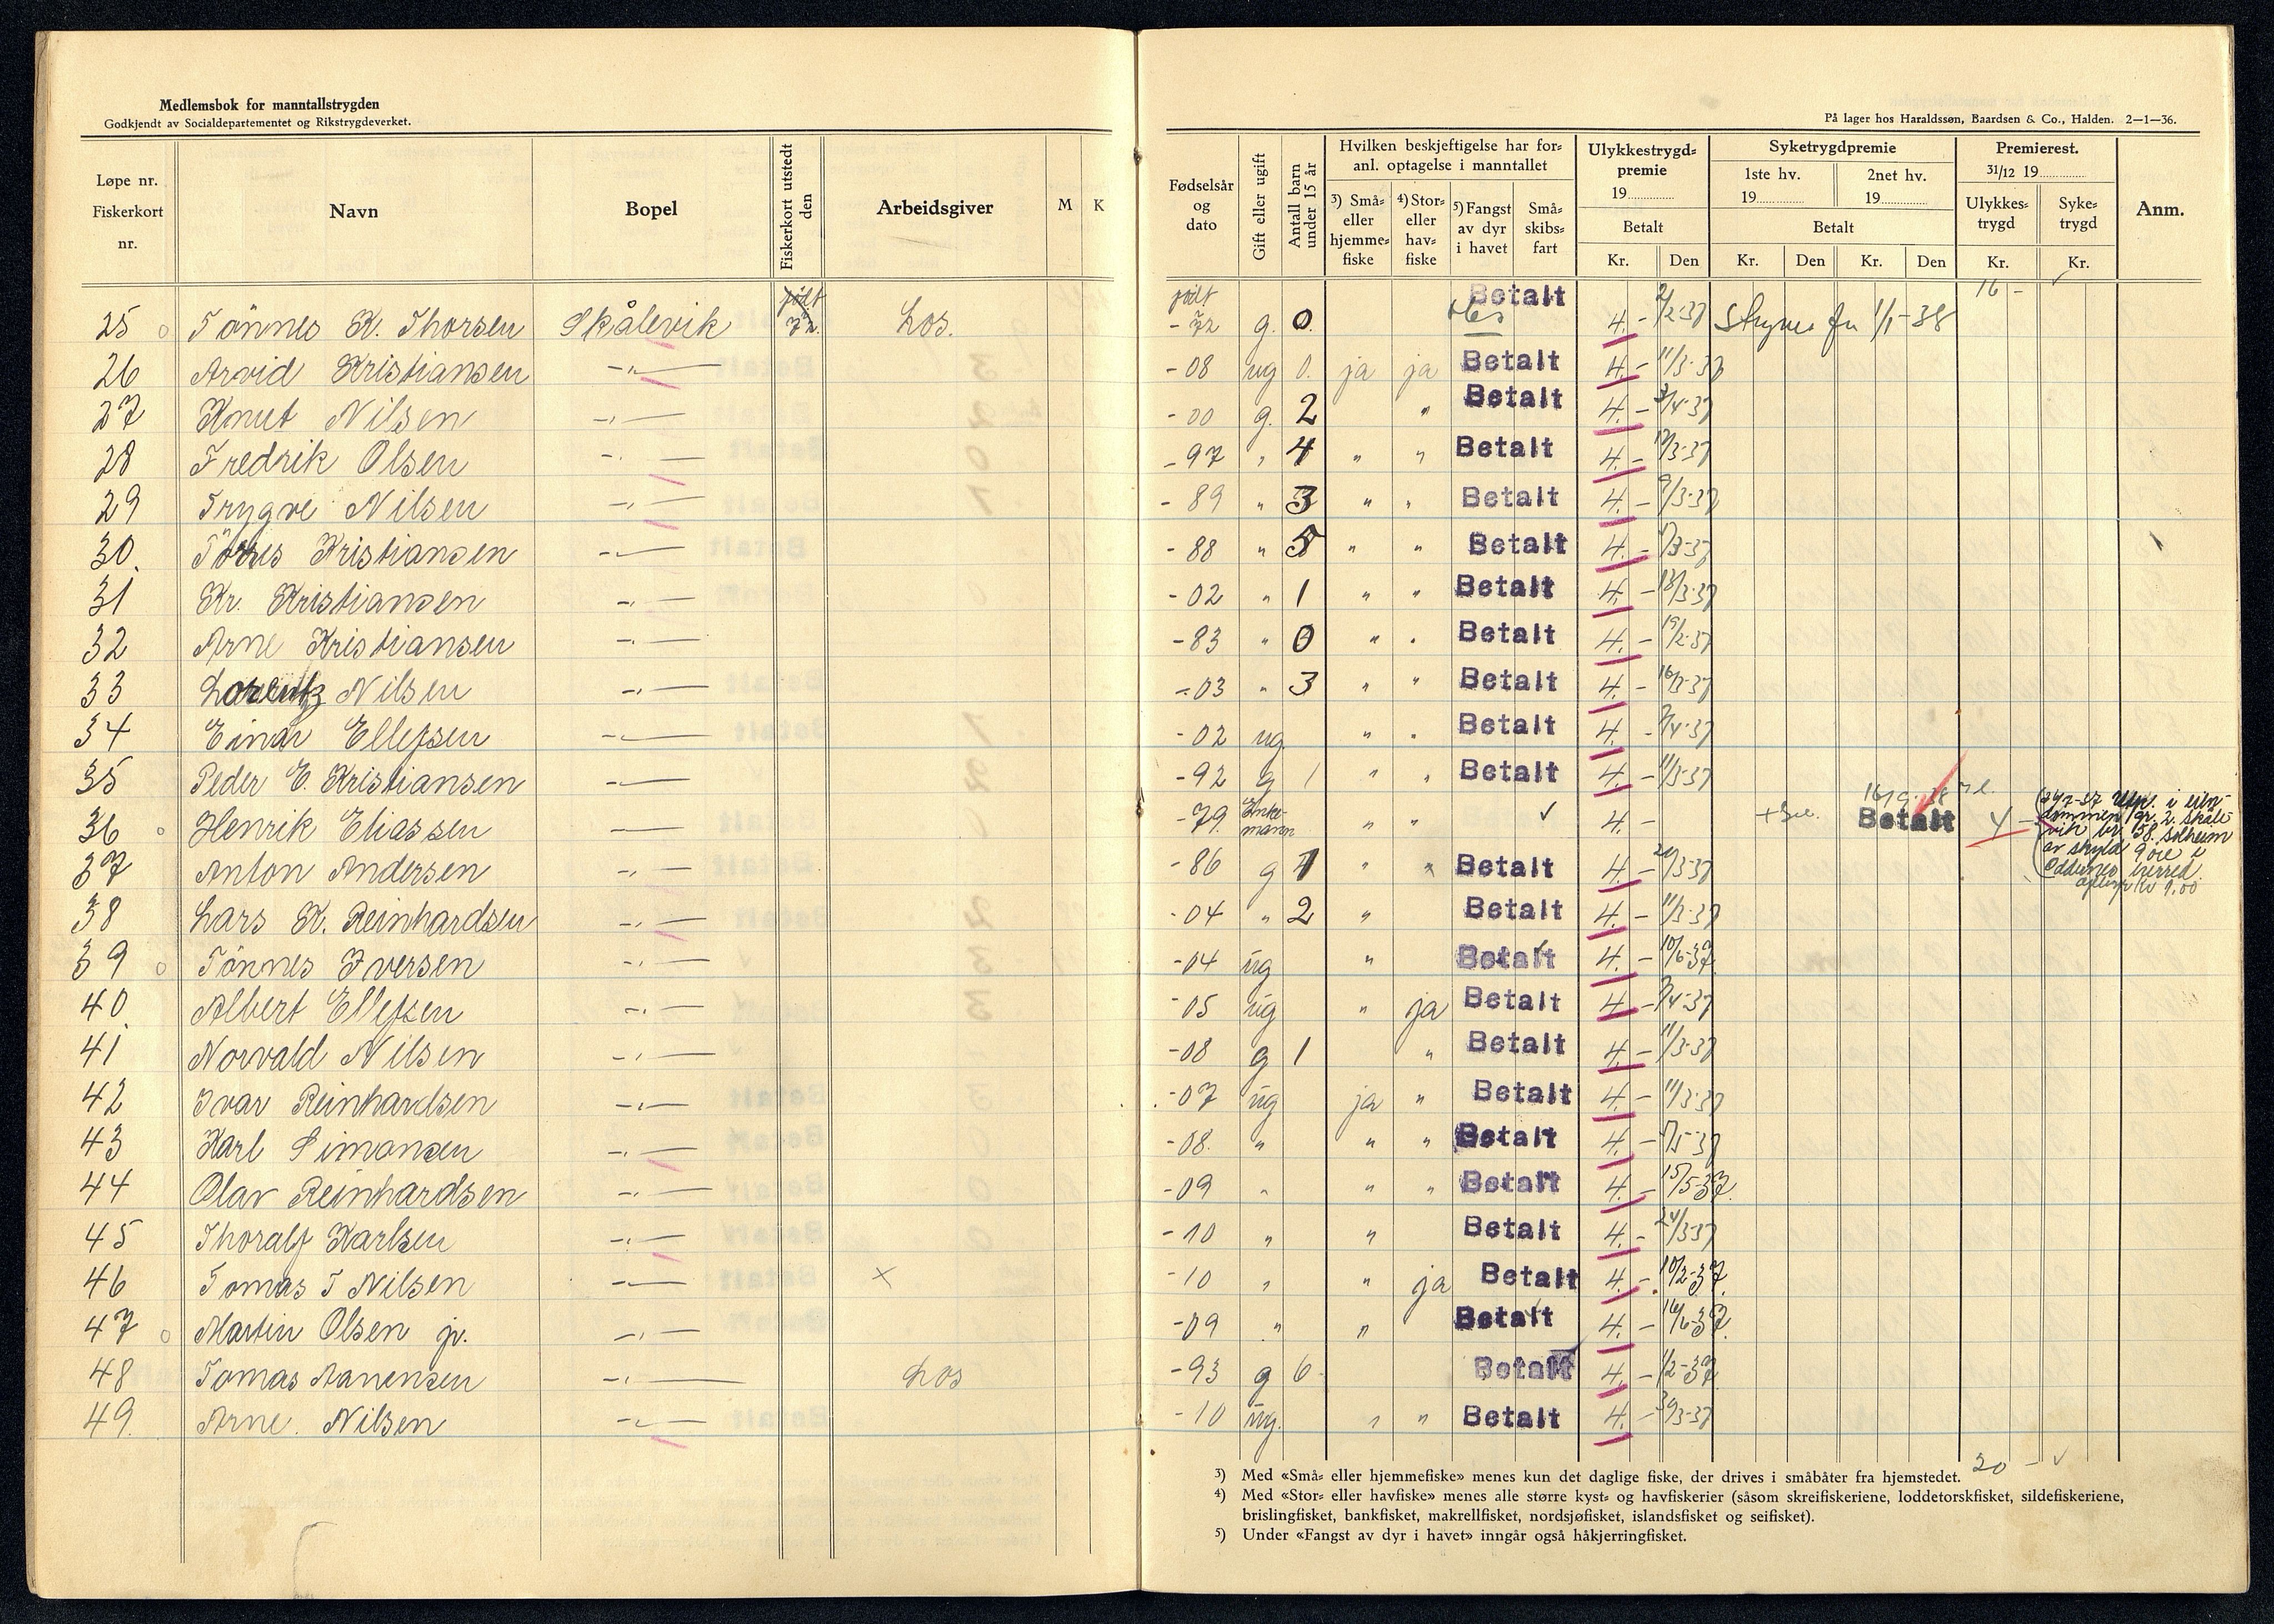 Medlemsbok for manntallstrygden
Godkjendt av Socialdepartementet og Rikstrygdeverket.
På lager hos Haraldssøn, Baardsen & Co., Halden. 2—1—36.
Løpe nr. Fiskerkort nr. Navn Bopel Fiskerkort utstedt den Arbeidsgiver M K
Fødselsår og dato Gift eller ugift Antall barn under 15 år Hvilken beskjeftigelse har foranl. optagelse i manntallet Ulykkestrygdpremie 19 Syketrygdpremie Premierest. 31/12 19 Anm.
3) Små- eller hjemmefiske 4) Stor- eller havfiske 5) Fangst av dyr i havet Småskibsfart Betalt 1ste hv. 19 2net hv. 19 Betalt Ulykkestrygd Syketrygd
Kr. Den Kr. Den Kr. Den Kr. Kr.
16 -
25 Tönnes K. Thorsen Skålevik født 72. Los. født - 72 g. 0. Betalt 4.- 2/12-37 Strykes fra 1/1-38
26 Arvid Kristiansen -"- - 08 ug 0. ja ja Betalt 4.- 11/3-37
27 Knut Nilsen -"- - 00 g. 2 " Betalt 4.- /4-37
28 Fredrik Olsen -"- - 97 " 4 " " Betalt 4.- /3-37
29 Trygve Nilsen -"- - 89 " 3 " " Betalt 4.- 9/3-37
30. Kristiansen -"- - 88 " 5 " " Betalt 4.- /3-37
31 Kr. Kristiansen -"- - 02 " 1 " " Betalt 4.- 13/3-37
32 Arne Kristiansen -"- - 83 " 0 " " Betalt 4.- 19/2-37
33 Lorentz Nilsen -"- - 03 " 3 " " Betalt 4.- 16/3-37
34 Einar Ellefsen -"- - 02 ug " " Betalt 4.- /4-37
35 Peder E. Kristiansen -"- - 92 g 1 " " Betalt 4.- 11/3-37
36 Henrik Eliassen -"- - 79. Enkemann " " ✓ 4.- Betalt 4 -
37 Anton Andersen -"- - 86 g 1 " " Betalt 4.- /3-37
38 Lars K. Reinhardsen -"- - 04 " 2 " Betalt 4.- 11/3-37
39 Tönnes Iversen -"- - 04 ug " Betalt 4.- 10/6-37.
40. Albert Ellefsen -"- - 05 ug " ja Betalt 4.- /4-37
41 Norvald Nilsen -"- - 08 g 1 " Betalt 4.- 11/3-37
42 Ivar Reinhardsen -"- - 07 ug ja " Betalt 4.- 11/3-37
43 Karl Simonsen -"- - 08. " " " Betalt 4.- /5-37
44 Olav Reinhardsen -"- - 09 " " " Betalt 4.- 15/5-37.
45 Thoralf Karlsen -"- - 10 " " Betalt 4.- 24/3-37
46 Tomas T Nilsen -"- × - 10 " " ja Betalt 4.- 10/2-37.
47 Martin Olsen jr. -"- - 09 " " Betalt 4.- 16/6-37.
48 Tomas Aanensen -"- Los - 93 g 6 Betalt 4.- 1/2-37.
49. Arne. Nilsen -"- - 10 ug. " " Betalt 4.- /3-37
20 - ✓
3) Med «Små- eller hjemmefiske» menes kun det daglige fiske, der drives i småbåter fra hjemstedet.
4) Med «Stor- eller havfiske» menes alle større kyst- og havfiskerier (såsom skreifiskeriene, loddetorskfisket, sildefiskeriene,
brislingfisket, bankfisket, makrellfisket, nordsjøfisket, islandsfisket og seifisket).
5) Under «Fangst av dyr i havet» inngår også håkjerringfisket.